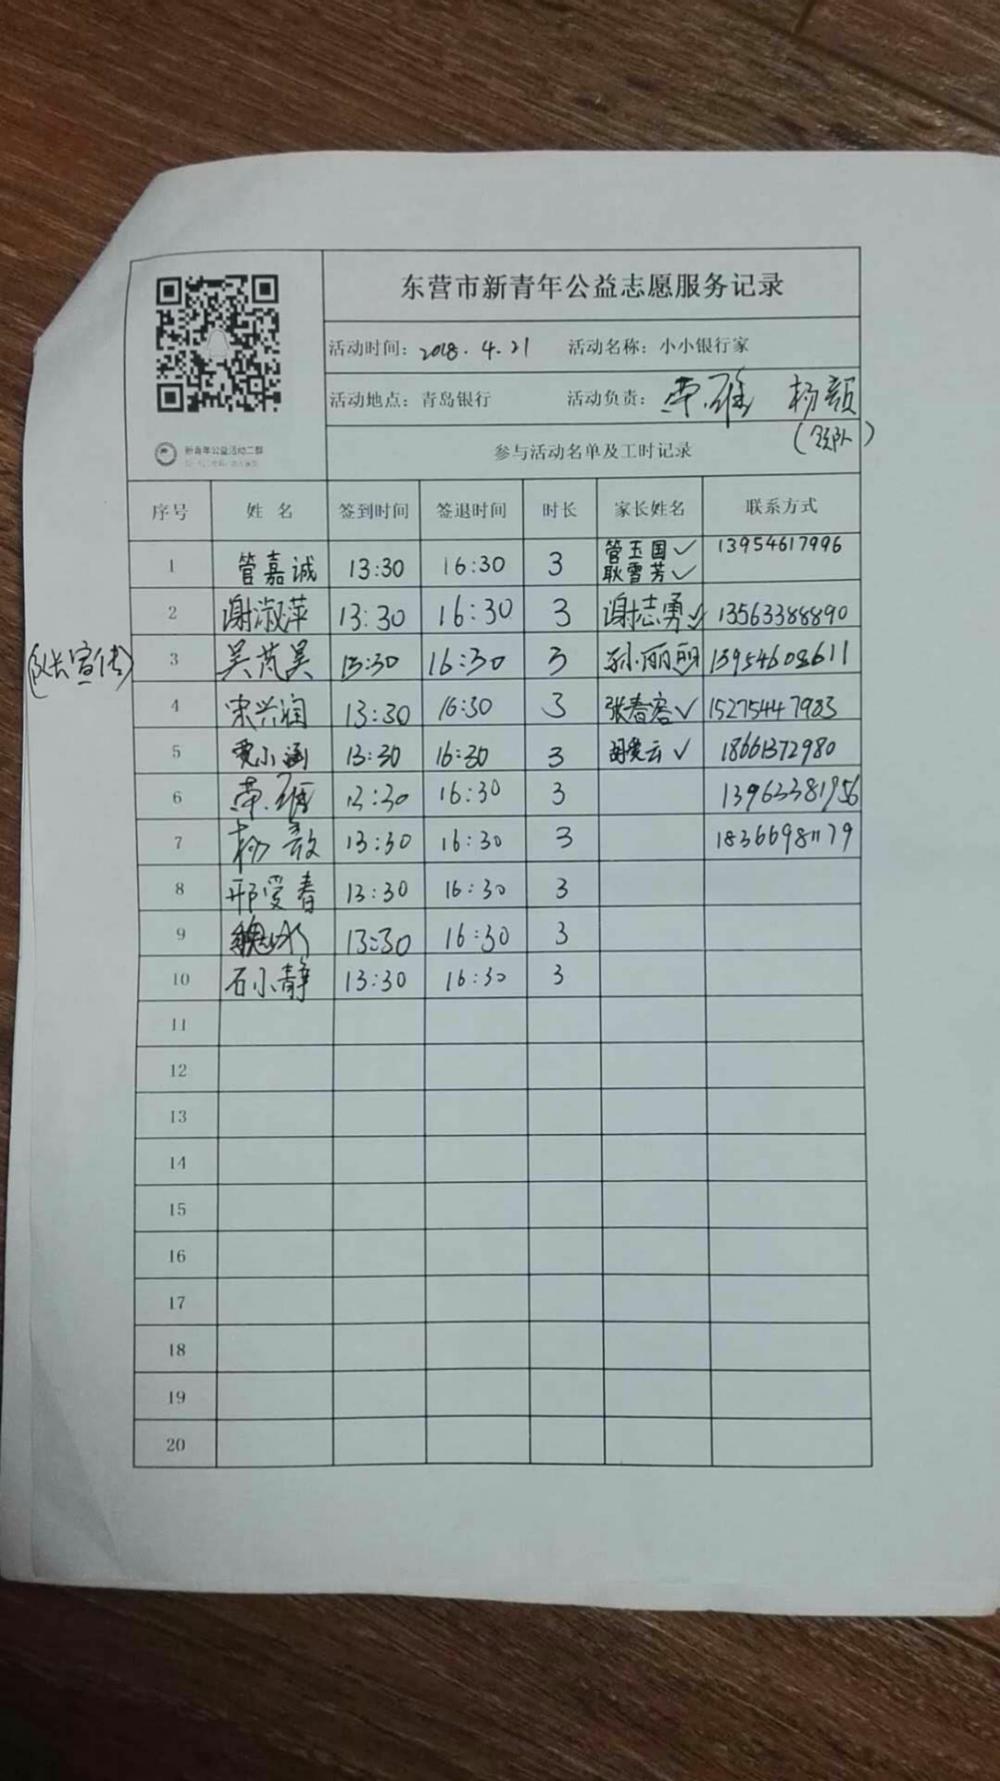 东营市新青年公益志愿服务记录
活动时间：2018.4.21 活动名称：小小银行家
活动地点：青岛银行 活动负责：荣雅 杨颜
(领队)
新青年公益活动二群
参与活动名单及工时记录
序号 姓名 签到时间 签退时间 时长 家长姓名 联系方式
1 管嘉诚 13:30 16:30 3 管玉国✓ 耿雪芳✓ 13954617996
2 谢淑萍 13:30 16:30 3 谢志勇✓ 13563388890
(队长宣传) 3 吴芃昊 13:30 16:30 3 孙丽丽 13954608611
4 宋兴润 13:30 16:30 3 张春容✓ 15275447983
5 贾小涵 13:30 16:30 3 ✓ 18661372980
6 荣雅 13:30 16:30 3 13963381956
7 杨 13:30 16:30 3 18366981179
8 邢爱春 13:30 16:30 3
9 13:30 16:30 3
10 石小静 13:30 16:30 3
11
12
13
14
15
16
17
18
19
20